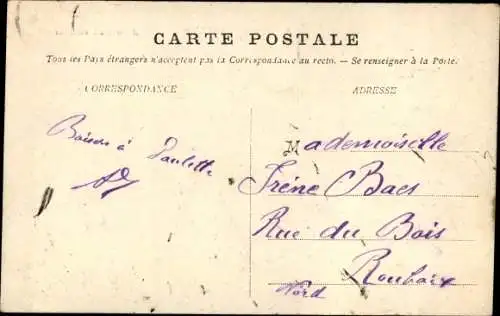 CARTE POSTALE
Tous les Pays étrangers n'acceptent pas la Correspondance au recto. — Se renseigner à la Poste.
CORRESPONDANCE
ADRESSE
Baisers à Paulette
Mademoiselle
Irène Baes
Rue du Bois
Roubaix
Nord